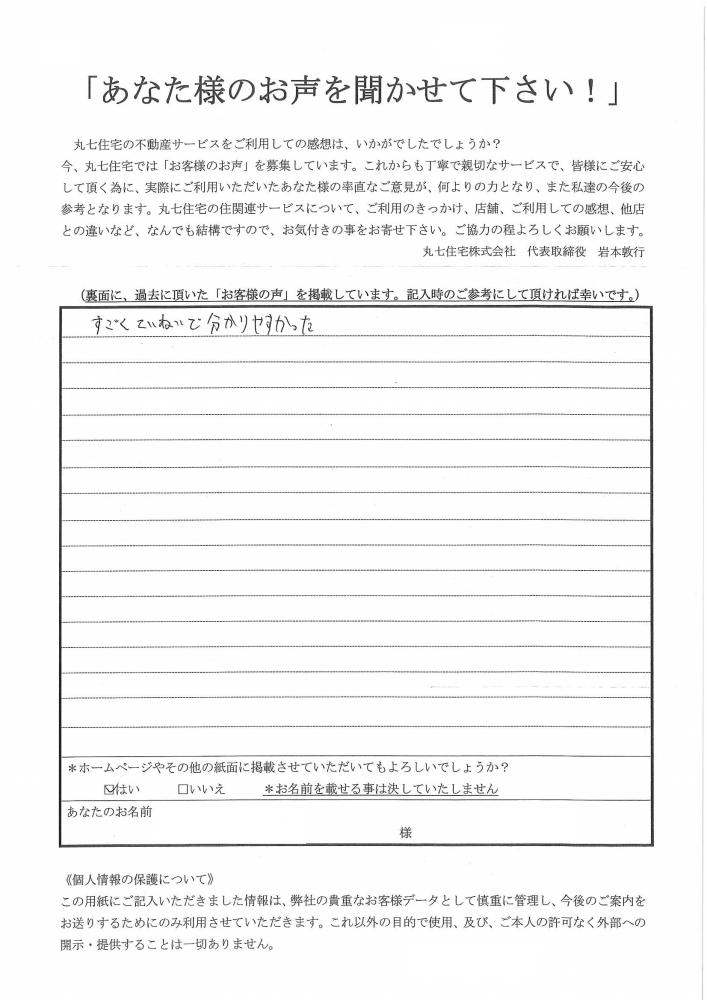 「あなた様のお声を聞かせて下さい！」
丸七住宅の不動産サービスをご利用しての感想は、いかがでしたでしょうか？
今、丸七住宅では「お客様のお声」を募集しています。これからも丁寧で親切なサービスで、皆様にご安心
して頂く為に、実際にご利用いただいたあなた様の率直なご意見が、何よりの力となり、また私達の今後の
参考となります。丸七住宅の住関連サービスについて、ご利用のきっかけ、店舗、ご利用しての感想、他店
との違いなど、なんでも結構ですので、お気付きの事をお寄せ下さい。ご協力の程よろしくお願いします。
丸七住宅株式会社　代表取締役　岩本敦行
（裏面に、過去に頂いた「お客様の声」を掲載しています。記入時のご参考にして頂ければ幸いです。）
すごくていねいで分かりやすかった
＊ホームページやその他の紙面に掲載させていただいてもよろしいでしょうか？
☑はい　□いいえ　＊お名前を載せる事は決していたしません
あなたのお名前
様
《個人情報の保護について》
この用紙にご記入いただきました情報は、弊社の貴重なお客様データとして慎重に管理し、今後のご案内を
お送りするためにのみ利用させていただきます。これ以外の目的で使用、及び、ご本人の許可なく外部への
開示・提供することは一切ありません。